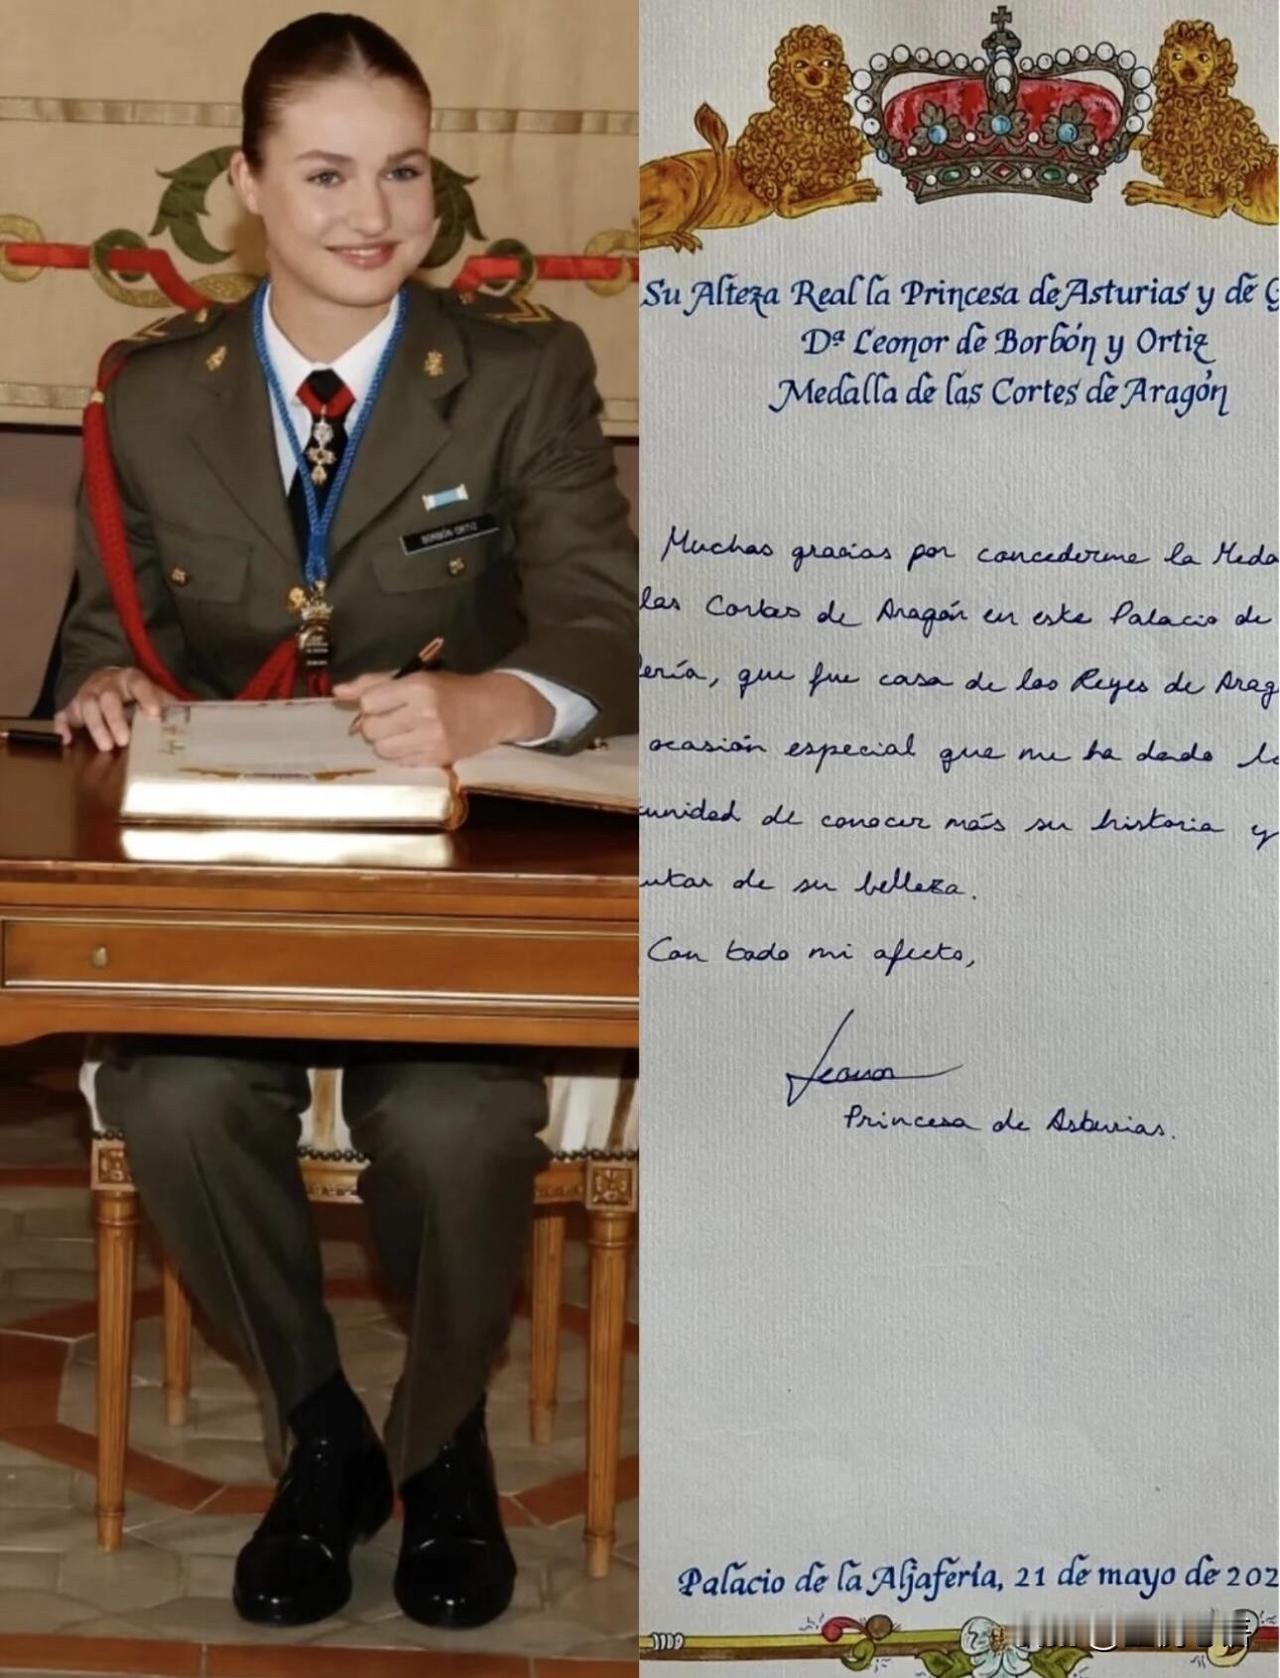 BORBÓN ORTIZ
Su Alteza Real la Princesa de Asturias y de G
Dª Leonor de Borbón y Ortiz
Medalla de las Cortes de Aragón
Muchas gracias por concederme la Meda
las Cortes de Aragón en este Palacio de
ería, que fue casa de los Reyes de Arag
ocasión especial que me ha dado la
tunidad de conocer más su historia y
utar de su belleza.
Con todo mi afecto,
Leonor
Princesa de Asturias.
Palacio de la Aljafería, 21 de mayo de 202